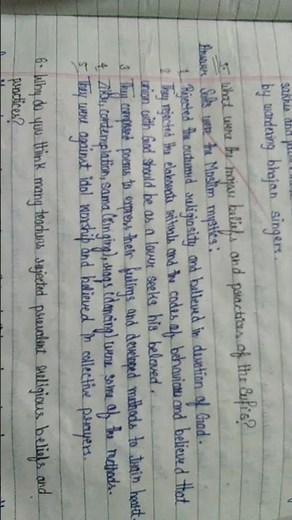 by wandering bhajan singers.
5. What were the major beliefs and practices of the Sufis?
Answer Sufis were the Muslim mystics:
1 Rejected the outward religiosity and believed in devotion of God.
2 They rejected the elaborate rituals and the codes of behaviour and believed that
union with God should be as a lover seeks his beloved.
3 They composed poems to express their feelings and developed methods to train heart.
4 Zikr, contemplation, sama (singing), raqs (dancing) were some of the methods.
5 They were against idol worship and believed in collective prayers.
6- Why do you think many teachers rejected prevalent religious beliefs and
practices?